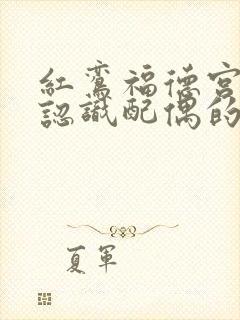 紅鸞福德宮
認識配偶的
夏軍